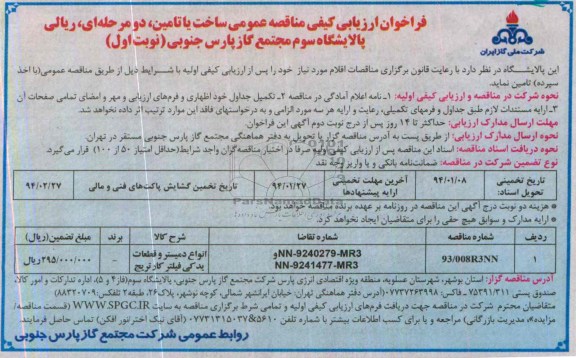 فراخوان ارزیابی کیفی مناقصه عمومی ساخت یا تامین، دو مرحله‌ای، ریالی
پالایشگاه سوم مجتمع گاز پارس جنوبی (نوبت اول)
شرکت ملی گاز ایران
این پالایشگاه در نظر دارد با رعایت قانون برگزاری مناقصات اقلام مورد نیاز خود را پس از ارزیابی کیفی اولیه با شرایط ذیل از طریق مناقصه عمومی (با اخذ
سپرده) تامین نماید.
نحوه شرکت در مناقصه و ارزیابی کیفی اولیه: ۱- نامه اعلام آمادگی در مناقصه ۲- تکمیل جداول خود اظهاری و فرم‌های ارزیابی و مهر و امضای تمامی صفحات آن
۳- ارایه مستندات لازم طبق جداول و فرمهای تکمیلی، رعایت و ارایه هر سه مورد الزامی و به درخواستهای فاقد این موارد ترتیب اثر داده نخواهد شد.
مهلت ارسال مدارک ارزیابی: حداکثر تا ۱۴ روز پس از درج نوبت دوم آگهی این فراخوان.
نحوه ارسال مدارک ارزیابی: از طریق پست به آدرس مناقصه گزار یا تحویل به دفتر هماهنگی مجتمع گاز پارس جنوبی مستقر در تهران.
نحوه دریافت اسناد مناقصه: اسناد این مناقصه پس از ارزیابی کیفی اولیه صرفا در اختیار مناقصه‌گران واجد شرایط (حداقل امتیاز ۵۰ از ۱۰۰) قرار می‌گیرد.
نوع تضمین شرکت در مناقصه: ضمانت‌نامه بانکی و یا واریز وجه نقد
تاریخ تخمینی تحویل اسناد: ۹۴/۰۱/۰۸ آخرین مهلت تخمینی ارایه پیشنهادها ۹۴/۰۱/۲۷ تاریخ تخمین گشایش پاکت‌های فنی و مالی ۹۴/۰۲/۲۷
* هزینه دو نوبت درج آگهی این مناقصه در روزنامه بر عهده برنده مناقصه خواهد بود.
* ارایه مدارک و سوابق هیچ حقی را برای متقاضیان ایجاد نخواهد کرد.
ردیف شماره مناقصه شماره تقاضا شرح کالا برند مبلغ تضمین (ریال)
۱ 93/008R3NN NN-9240279-MR3 و NN-9241477-MR3 انواع دمیستر و قطعات یدکی فیلتر کارتریج - ۲۹۵/۰۰۰/۰۰۰ ریال
آدرس مناقصه گزار: استان بوشهر، شهرستان عسلویه، منطقه ویژه اقتصادی انرژی پارس شرکت مجتمع گاز پارس جنوبی، پالایشگاه سوم (فاز ۴ و ۵)، اداره تدارکات و امور کالا،
صندوق پستی ۷۵۳۹۱/۳۱۱ آدرس دفتر هماهنگی تهران: خیابان ایرانشهر شمالی، کوچه نوشهر، پلاک ۲۶، طبقه ۲
متقاضیان محترم شرکت در مناقصه جهت دریافت فرم‌های ارزیابی کیفی اولیه و تمامی شرایط برگزاری مناقصه به سایت WWW.SPGC.IR (قسمت مناقصه/
مزایده، مدیریت بازرگانی) مراجعه و یا برای کسب اطلاعات بیشتر با شماره تلفن ۵۶۱۰ & ۰۷۷۳۱۳۱۵۰۳۷ (آقای نیک اختر/نور افکن) تماس حاصل فرمایند.
روابط عمومی شرکت مجتمع گاز پارس جنوبی